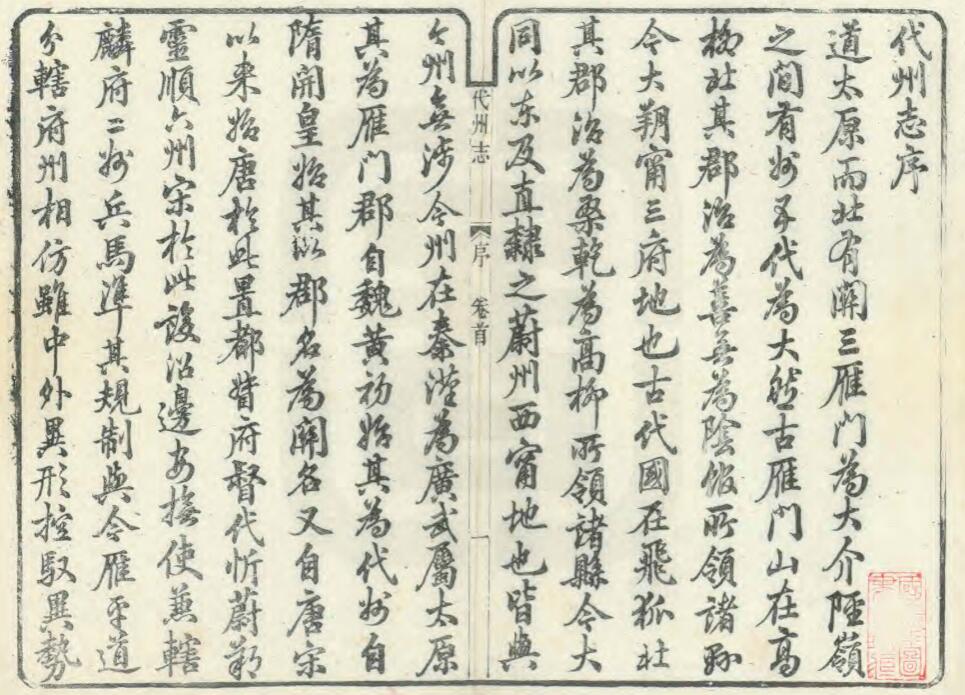 代州志序
道太原而北有關三雁門為大介陘嶺
之間有州五代為大然古雁門山在高
柳北其郡治為善無為陰館所領諸縣
今大朔甯三府地也古代國在飛狐北
其郡治為桑乾為高柳所領諸縣今大
同以东及直隸之蔚州西甯地也皆與
今州無涉今州在秦漢為廣武屬太原
其為雁門郡自魏黃初始其為代州自
隋開皇始其以郡名為關名又自唐宋
以来始唐於此置都督府督代忻蔚朔
靈順六州宋於此設沿邊安撫使兼轄
麟府二州兵馬準其規制與今雁平道
分轄府州相仿雖中外異形控馭異勢
代州志
序
卷首